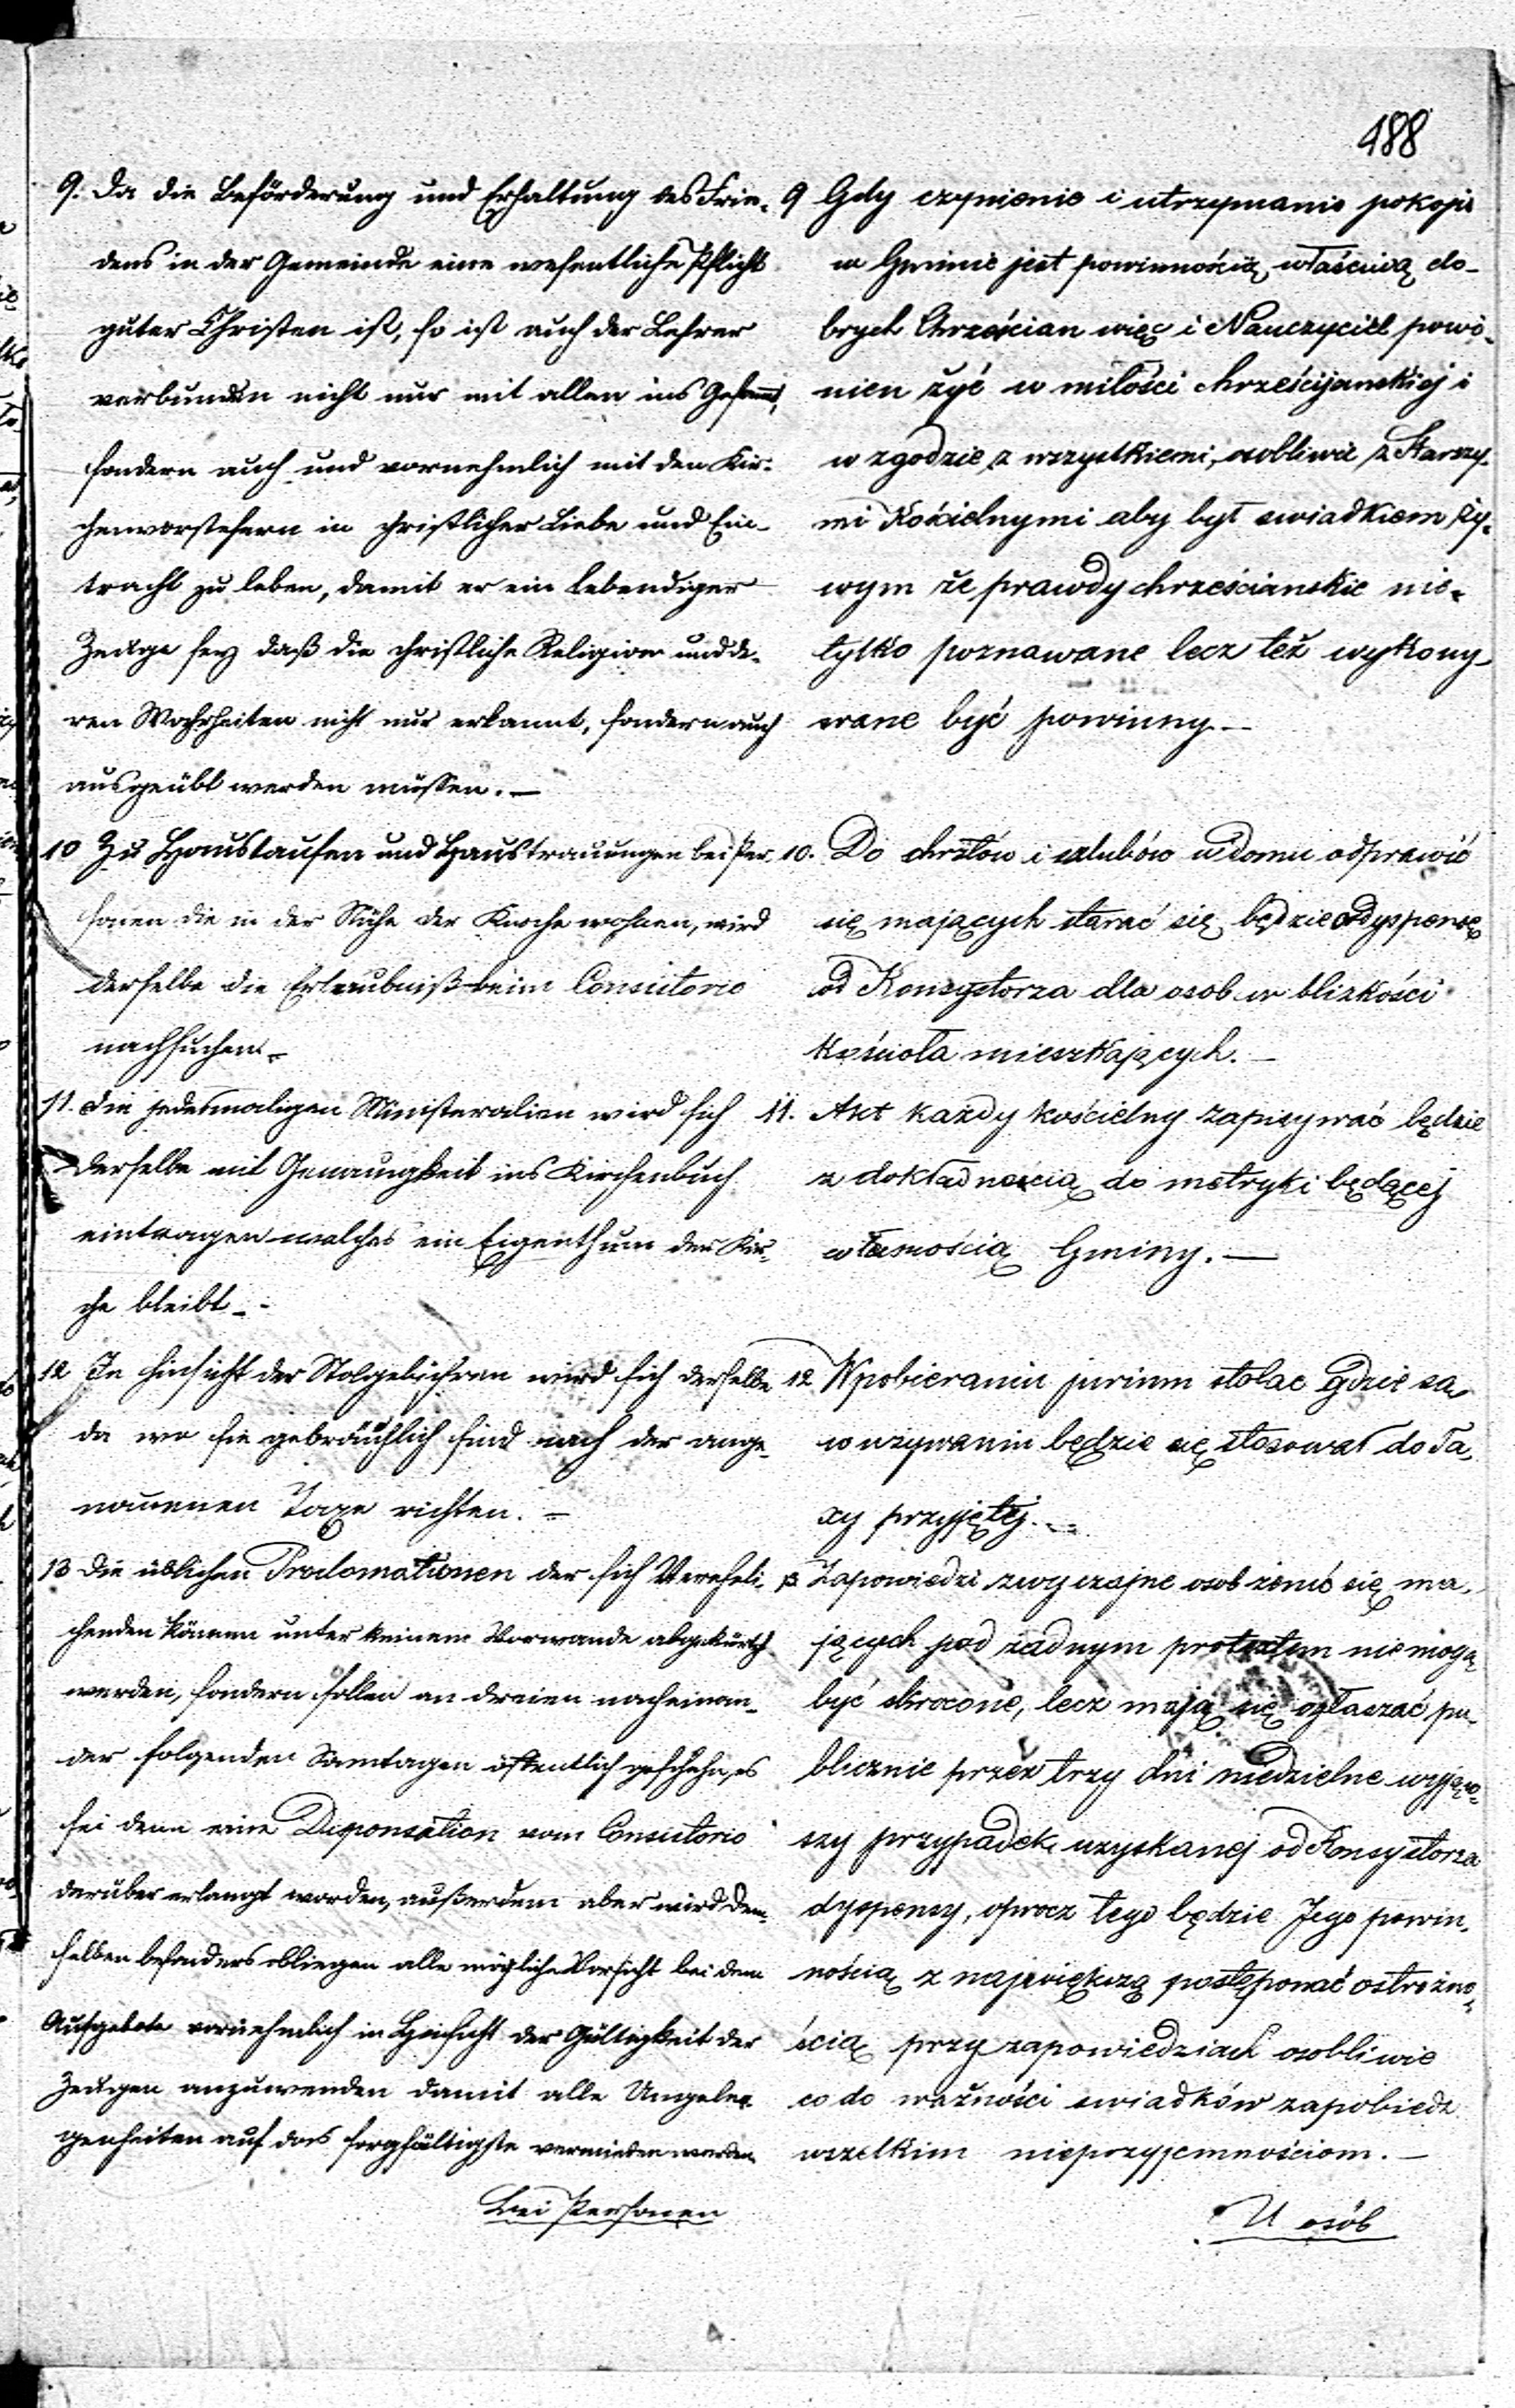 188
9. Da die Beförderung und Erhaltung des Frie-
dens in der Gemeinde eine wesentliche Pflicht
guter Christen ist, so ist auch der Lehrer
verbunden nicht nur mit allen ins Gesamt,
sondern auch und vornehmlich mit den Kir-
chenvorstehern in christlicher Liebe und Ein-
tracht zu leben, damit er ein lebendiger
Zeuge sey daß die christliche Religion und de-
ren Wahrheiten nicht nur erkannt, sondern auch
ausgeübt werden müssen. —
10 Zu Haustaufen und Haustrauungen bei Per-
sonen die in der Nähe der Kirche wohnen, wird
derselbe die Erlaubniß beim Consistorio
nachsuchen. –
11. Die jedesmaligen Ministerialien wird sich
derselbe mit Genauigkeit ins Kirchenbuch
eintragen welches ein Eigenthum der Kir-
che bleibt. –
12 In Hinsicht der Stolgebühren wird sich derselbe
da wo sie gebräuchlich sind nach der ange-
nommenen Taxe richten. –
13 Die üblichen Proclamationen der sich Vereheli-
chenden können unter keinem Vorwande abgekürtzt
werden, sondern sollen an dreien nacheinan-
der folgenden Sonntagen öffentlich geschehn, es
sei denn eine Dispensation vom Consistorio
darüber erlangt worden, außerdem aber wird dem-
selben besonders obliegen alle mögliche Vorsicht bei dem
Aufgebote vornehmlich in Hinsicht der Gültigkeit der
Zeugen anzuwenden damit alle Ungele-
genheiten auf das sorgfältigste vermieden werden
Bei Personen
9 Gdy czynienie i utrzymanie pokoju
w Gminie jest powinnością właściwą do-
brych Chrześcian więc i Nauczyciel powi-
nien żyć w miłości chrześcijanskiej i
w zgodzie z wszystkiemi, osobliwie z Starszy-
mi Kościelnymi aby był swiadkiem ży-
wym że prawdy chrześcianskie nie-
tylko poznawane lecz też wykony-
wane być powinny. –
10. Do chrztów i szlubów w domu odprawić
się mających starać się będzie o dyspensę
od Konsystorza dla osob w blizkości
kościoła mieszkających. –
11. Akt każdy kościelny zapisywać będzie
z dokładnością do metryki będącej
własnością Gminy. —
12 W pobieraniu jurium stolae gdzie są
w używaniu będzie się stosował do Ta-
xy przyjętej. –
13 Zapowiedzi zwyczajne osob żenić się ma-
jących pod żadnym protextem nie mogą
być skrocone, lecz mają się ogłaszać pu-
blicznie przez trzy dni niedzielne wyjąw-
szy przypadek uzyskanej od Konsystorza
dyspensy, oprocz tego będzie Jego powin-
nością z największą postępować ostrożno-
ścią przy zapowiedziach osobliwie
co do ważności swiadków zapobiedz
wszelkim nieprzyjemnościom. –
U osób